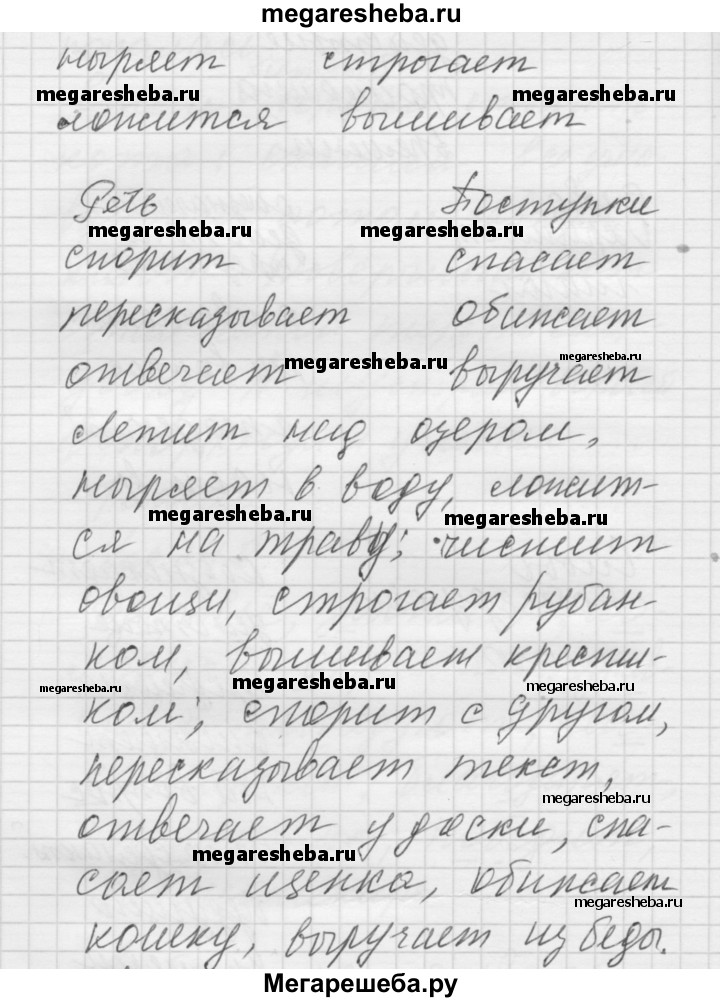 megaresheba.ru
ныряет строгает
megaresheba.ru megaresheba.ru
ложится вышивает
Речь Поступки
megaresheba.ru megaresheba.ru
спорит спасает
пересказывает обижает
megaresheba.ru megaresheba.ru
отвечает выручает
Летит над озером,
ныряет в воду, ложит-
megaresheba.ru megaresheba.ru
ся на траву; чистит
овощи, строгает рубан-
ком, вышивает крести-
megaresheba.ru megaresheba.ru megaresheba.ru
ком; спорит с другом,
пересказывает текст,
megaresheba.ru
отвечает у доски, спа-
megaresheba.ru
сает щенка, обижает
megaresheba.ru
кошку, выручает из беды.
Мегарешеба.ру